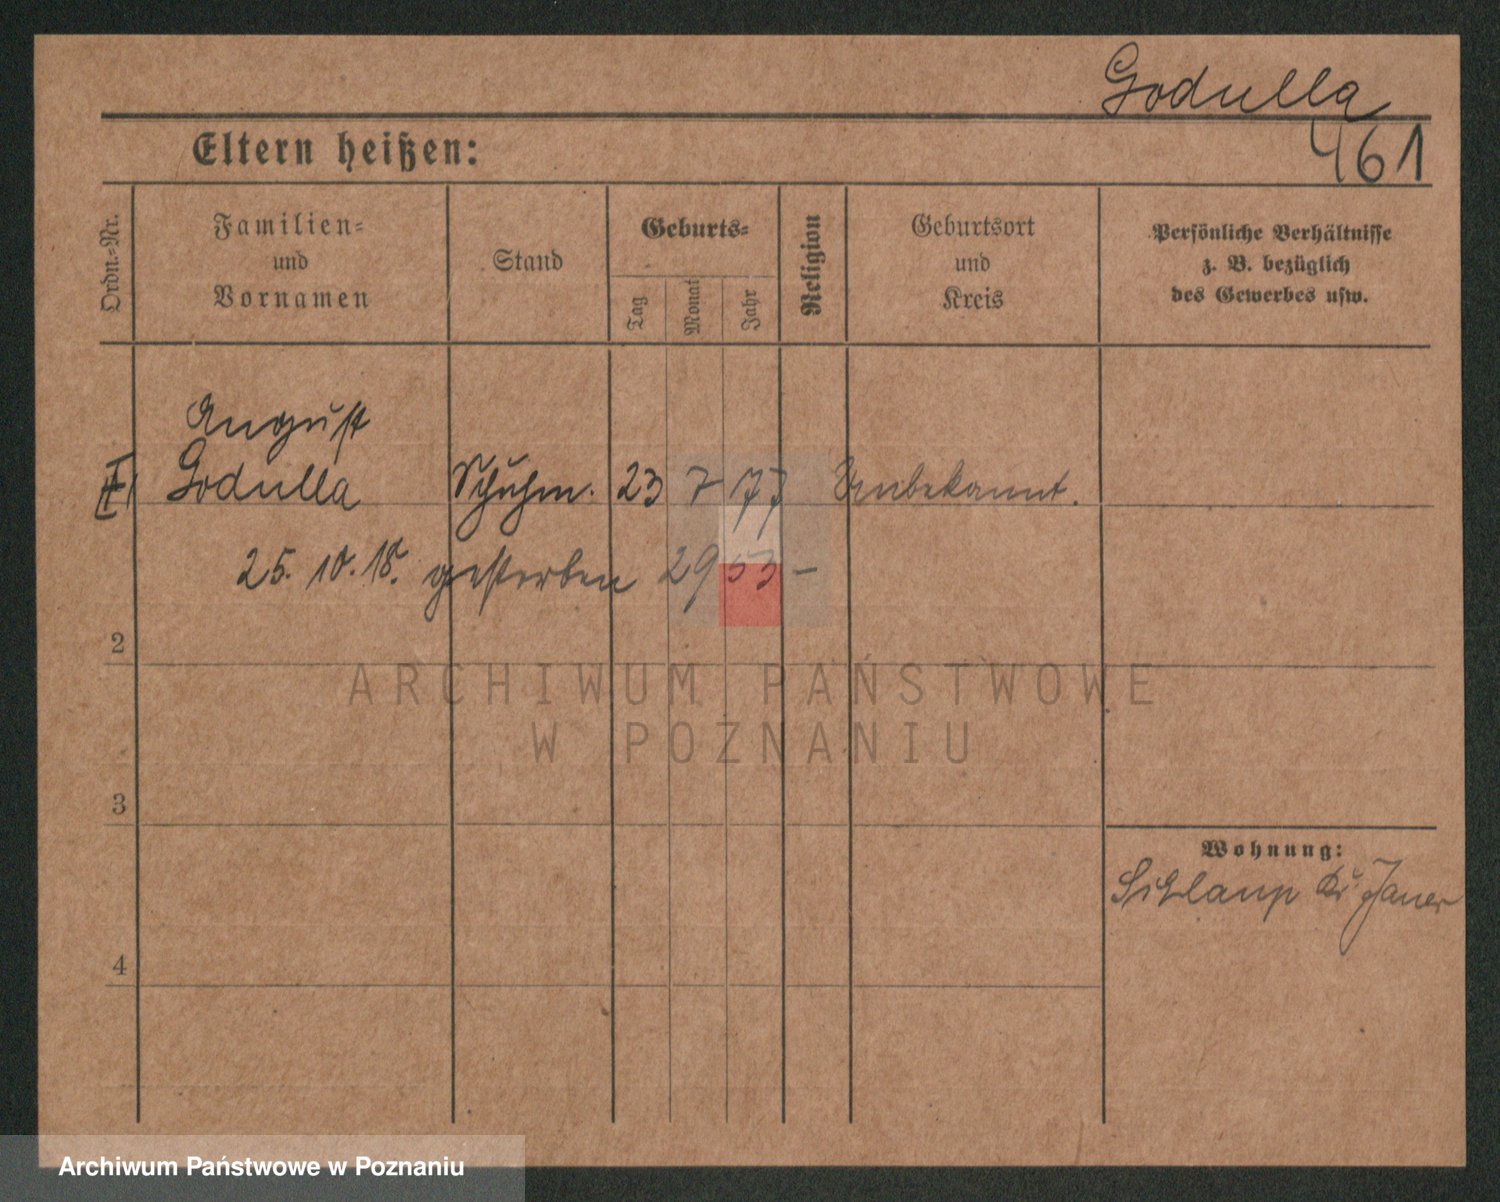 Godulla
461
Eltern heißen:
Ordn.-Nr.
Familien- und Vornamen
Stand
Geburts-
Tag
Monat
Jahr
Religion
Geburtsort und Kreis
Persönliche Verhältnisse
z. B. bezüglich
des Gewerbes usw.
August
Godulla
Schuhm.
23
7
77
Unbekannt.
25. 10. 18. gestorben 2953 -
2
3
4
Wohnung:
Kr. Jauer
ARCHIWUM PAŃSTWOWE
W POZNANIU
Archiwum Państwowe w Poznaniu